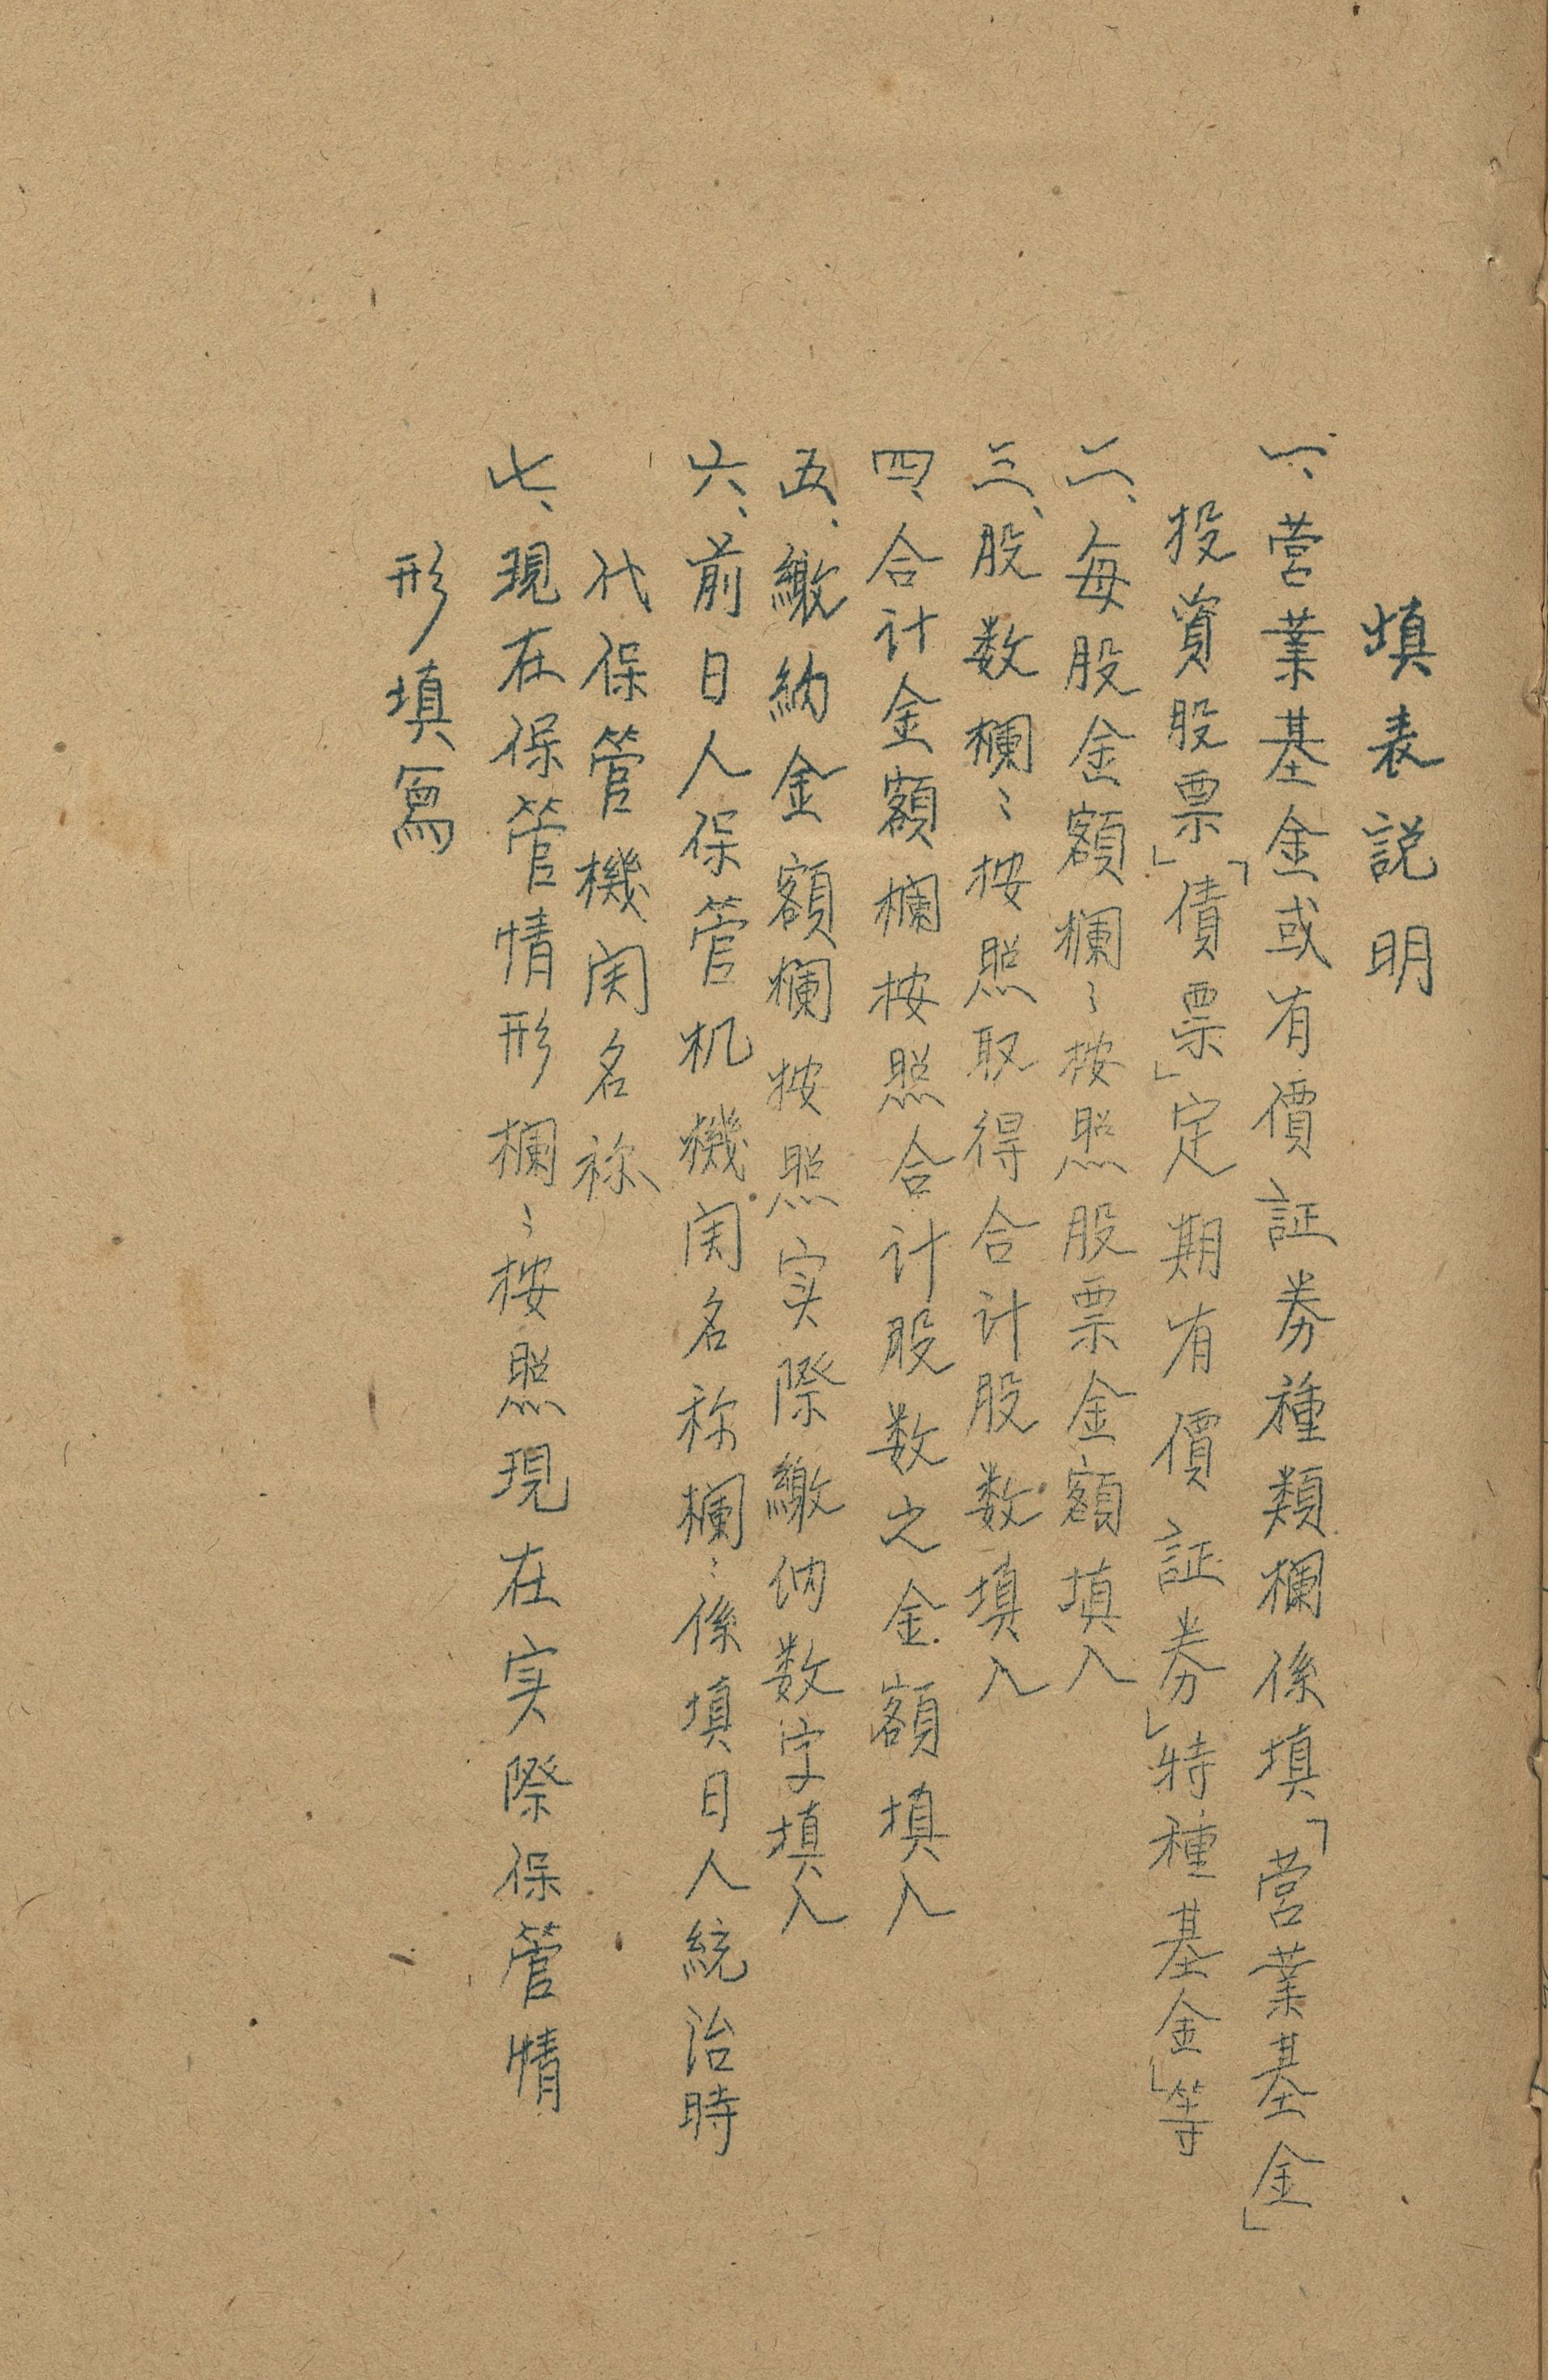 填表説明
一、営業基金或有價証券種類欄係填「営業基金」
投資股票」「債票」定期有價証券」特種基金」等
二、每股金額欄：按照股票金額填入
三、股数欄：按照取得合计股数填入
四、合计金額欄按照合计股数之金額填入
五、繳納金額欄按照实際繳納数字填入
六、前日人保管机機関名称欄：係填日人統治時
代保管機関名称
七、現在保管情形欄：按照現在实際保管情
形填寫